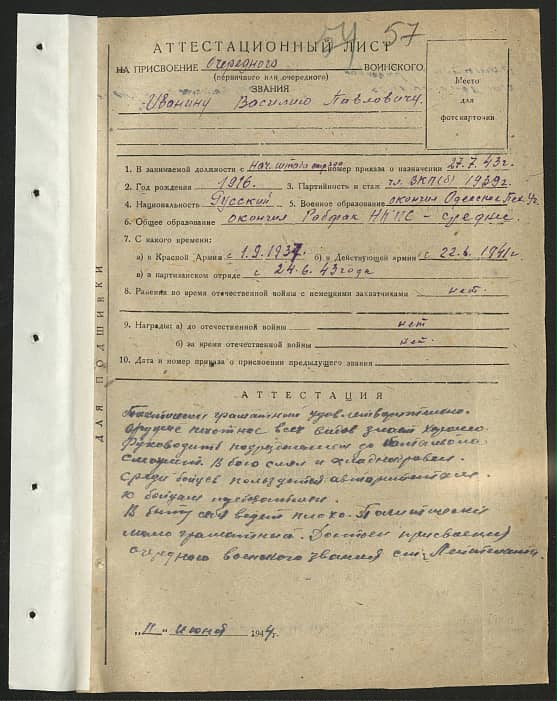 57
АТТЕСТАЦИОННЫЙ ЛИСТ
НА ПРИСВОЕНИЕ Очередного ВОИНСКОГО
(первичного или очередного)
ЗВАНИЯ
Иванину Василию Павловичу
Место
для
фотокарточки
1. В занимаемой должности с Нач. штаба отряда номер приказа о назначении 27.7.43г.
2. Год рождения 1916. 3. Партийность и стаж чл. ВКП(б) 1939г.
4. Национальность Русский 5. Военное образование окончил Одесское Пех. Уч.
6. Общее образование окончил Рабфак НКПС – среднее
7. С какого времени:
а) в Красной Армии с 1.9.1937 б) в Действующей армии с 22.6.1941г
в) в партизанском отряде с 24.6.43 года
8. Ранения во время отечественной войны с немецкими захватчиками нет.
9. Награды: а) до отечественной войны нет
б) за время отечественной войны нет.
10. Дата и номер приказа о присвоении предыдущего звания
ДЛЯ ПОДШИВКИ
АТТЕСТАЦИЯ
Тактически грамотный удовлетворительно.
Оружие пехотное всех видов знает хорошо.
Руководить подразделением до батальона
сможет. В бою смел и хладнокровен.
Среди бойцов пользуется авторитетом
к бойцам
В быту себя ведет плохо. Политически
мало грамотный. Достоин присвоения
очередного воинского звания ст. Лейтенант.
„11" июня 1944г.